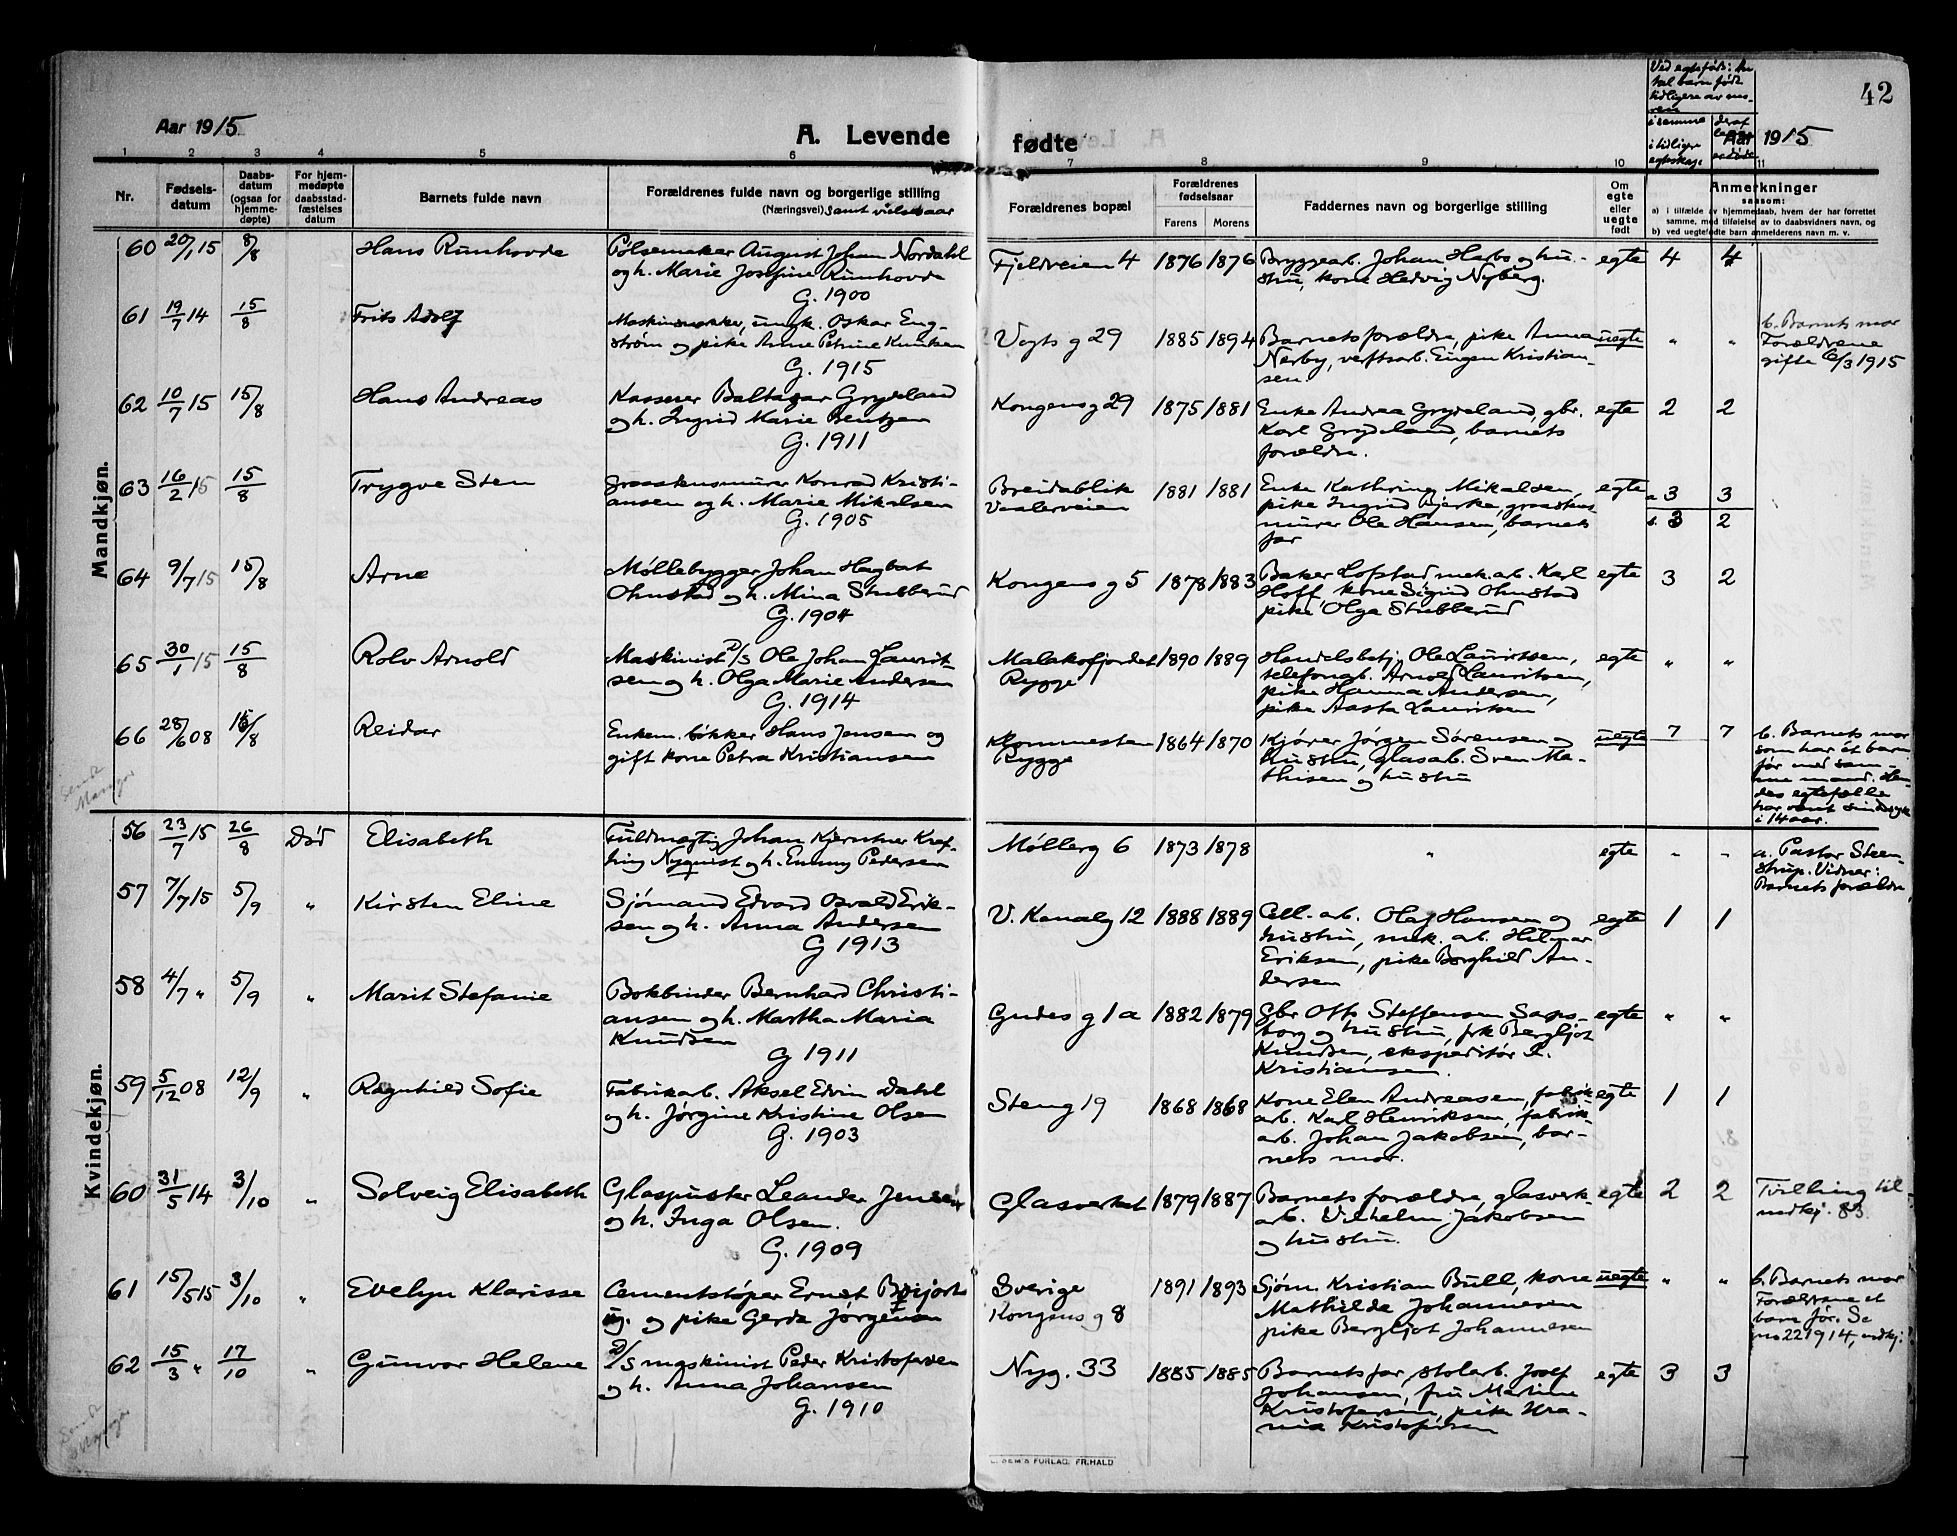 42
Aar 1915
A. Levende fødte
Aar 1915
Ved egtefødt: An-
tal barn født
tidligere av mo-
ren
i samme
i tidligere
egteskap.
1 2 3 4 5 6 7 8 9 10 11
Nr.
Fødsels-
datum
Daabs-
datum
(ogsaa for
hjemme-
døpte)
For hjem-
medøpte
daabsstad-
fæstelses
datum
Barnets fulde navn
Forældrenes fulde navn og borgerlige stilling
(Næringsvei) samt vielsesaar
Forældrenes bopæl
Forældrenes
fødselsaar
Farens Morens
Faddernes navn og borgerlige stilling
Om
egte
eller
uegte
født
Anmerkninger
saasom:
a) i tilfælde av hjemmedaab, hvem der har forrettet
samme, med tilføielse av to daabsvidners navn, og
b) ved uegtefødte barn anmelderens navn m. v.
Mandkjøn.
60 20/1 15 8/8 Hans Runhovde
Pølsemaker August Johan Nordahl
og h. Marie Josefine Runhovde
G. 1900
Fjeldveien 4 1876 1876
Bryggearb. Johan Herbo og hu-
stru, kone Hedvig Nyberg.
egte 4 4
61 19/7 14 15/8 Frits Adolf
Maskinsnekker, ungk. Oskar Eng-
strøm og pike Anne Petrine Knutsen
G. 1915
Vogts g 29 1885 1894
Barnets forældre, pike Anna
Nerby, verftsarb. Eugen Kristian-
sen.
uegte " "
b. Barnets mor
Forældrene
gifte 6/3 1915
62 10/7 15 15/8 Hans Andreas
Kasserer Baltazar Grydeland
og h. Ingrid Marie Bentzen
G. 1911
Kongens g 29 1875 1881
Enke Andrea Grydeland, gbr.
Karl Grydeland, barnets
forældre.
egte 2 2
63 16/2 15 15/8 Trygve Sten
Graastensmurer Konrad Kristi-
ansen og h. Marie Mikalsen
G. 1905
Breidablik
Vaalerveien
1881 1881
Enke Kathrine Mikalsen,
pike Ingrid Bjerke, graastens-
murer Ole Hansen, barnets
far
egte a 3 3
b. 3 2
64 9/7 15 15/8 Arne
Møllebygger Johan Hagbat
Ohnstad og h. Mina Stubberud
G. 1904
Kongens g 5 1878 1883
Baker Lofstad, mek. arb. Karl
Hoff, kone Sigrid Ohnstad
pike Olga Stubberud
egte 3 2
65 30/1 15 15/8 Rolv Arnold
Maskinist D/S Ole Johan Laurit-
sen og h. Olga Marie Andersen
G. 1914
Malakofjordet
Rygge
1890 1889
Handelsbetj. Ole Lauritsen,
telefonarb. Arnold Lauritsen,
pike Hanna Andersen,
pike Aasta Lauritsen
egte " "
66 28/6 08 15/8 Reidar
Enkem. bøkker Hans Jensen og
gift kone Petra Kristiansen
Rygge
1864 1870
Kjører Jørgen Sørensen og
hustru, glasarb. Sven Ma-
thisen og hustru
uegte 7 7
b. Barnets mor
som har ét barn
før med sam-
me mand. Hen-
des egtefælle
har været sindssyk
i 14 aar.
Kvindekjøn.
56 23/7 15 26/8 Død Elisabeth
Fuldmægtig Johan Kjerulf Kraf-
ting Nyquist og h. Emmy Pedersen
Mølleg 6 1873 1878
"
egte " "
a. Pastor Steen-
strup. Vidner:
Barnets forældre
57 7/7 15 5/9 " Kirsten Eline
Sjømand Edvard Osvald Erik-
sen og h. Anna Andersen
G 1913
V. Kanalg 12 1888 1889
Cell. arb. Olaf Hansen og
hustru, mek. arb. Hilmar
Eriksen, pike Borghild An-
dersen
egte 1 1
58 4/7 " 5/9 " Marit Stefanie
Bokbinder Bernhard Christi-
ansen og h. Martha Maria
Knudsen
G 1911
Gudes g 1a 1882 1879
Gbr Otto Steffensen Sarps-
borg og hustru, frk Bergljot
Knudsen, ekspeditør R.
Kristiansen.
egte " "
59 5/12 08 12/9 " Ragnhild Sofie
Fabrikarb. Aksel Edvin Dahl
og h. Jørgine Kristine Olsen
G. 1903
Steng 19 1868 1868
Kone Elen Andreasen, fabrik-
arb. Karl Henriksen, fabrik-
arb. Johan Jakobsen, bar-
nets mor.
egte 1 1
60 31/5 14 3/10 " Solveig Elisabeth
Glaspuster Leander Jensen
og h. Inga Olsen.
G. 1909
Glasverket 1879 1887
Barnets forældre, glasverk-
arb. Vilhelm Jakobsen
og hustru.
egte 2 2
Tvilling til
mdkj. 83.
61 15/5 15 3/10 " Evelyn Klarisse
Cementstøper Ernst
og pike Gerda Jørgensen
Sverige
Kongens g 8
1891 1893
Sjøm. Kristian Bull, kone
Mathilde Johannesen
pike Bergljot Johannesen
uegte " "
b. Barnets mor
Forældrene et
barn før. Se
no 22 1914, mdkj.
62 15/3 " 17/10 " Gunvor Helene
D/S maskinist Peder Kristofersen
og h. Anna Johansen
G. 1910
Nyg. 33 1885 1885
Barnets far, stolarb. Josef
Johansen, fru Martine
Kristofersen, pike Hra-
nia Kristofersen
egte 3 3
FORLAG, FR. HALD